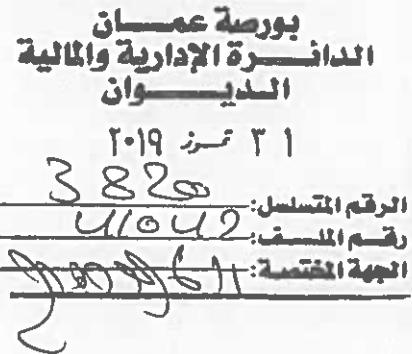 بورصة عمــــان
الدائــــرة الإدارية والمالية
الـديــــوان
٣١ تمـوز ٢٠١٩
الرقم المتسلسل: 3820
رقـــم الملـــف: 41042
الجهة المختصة: